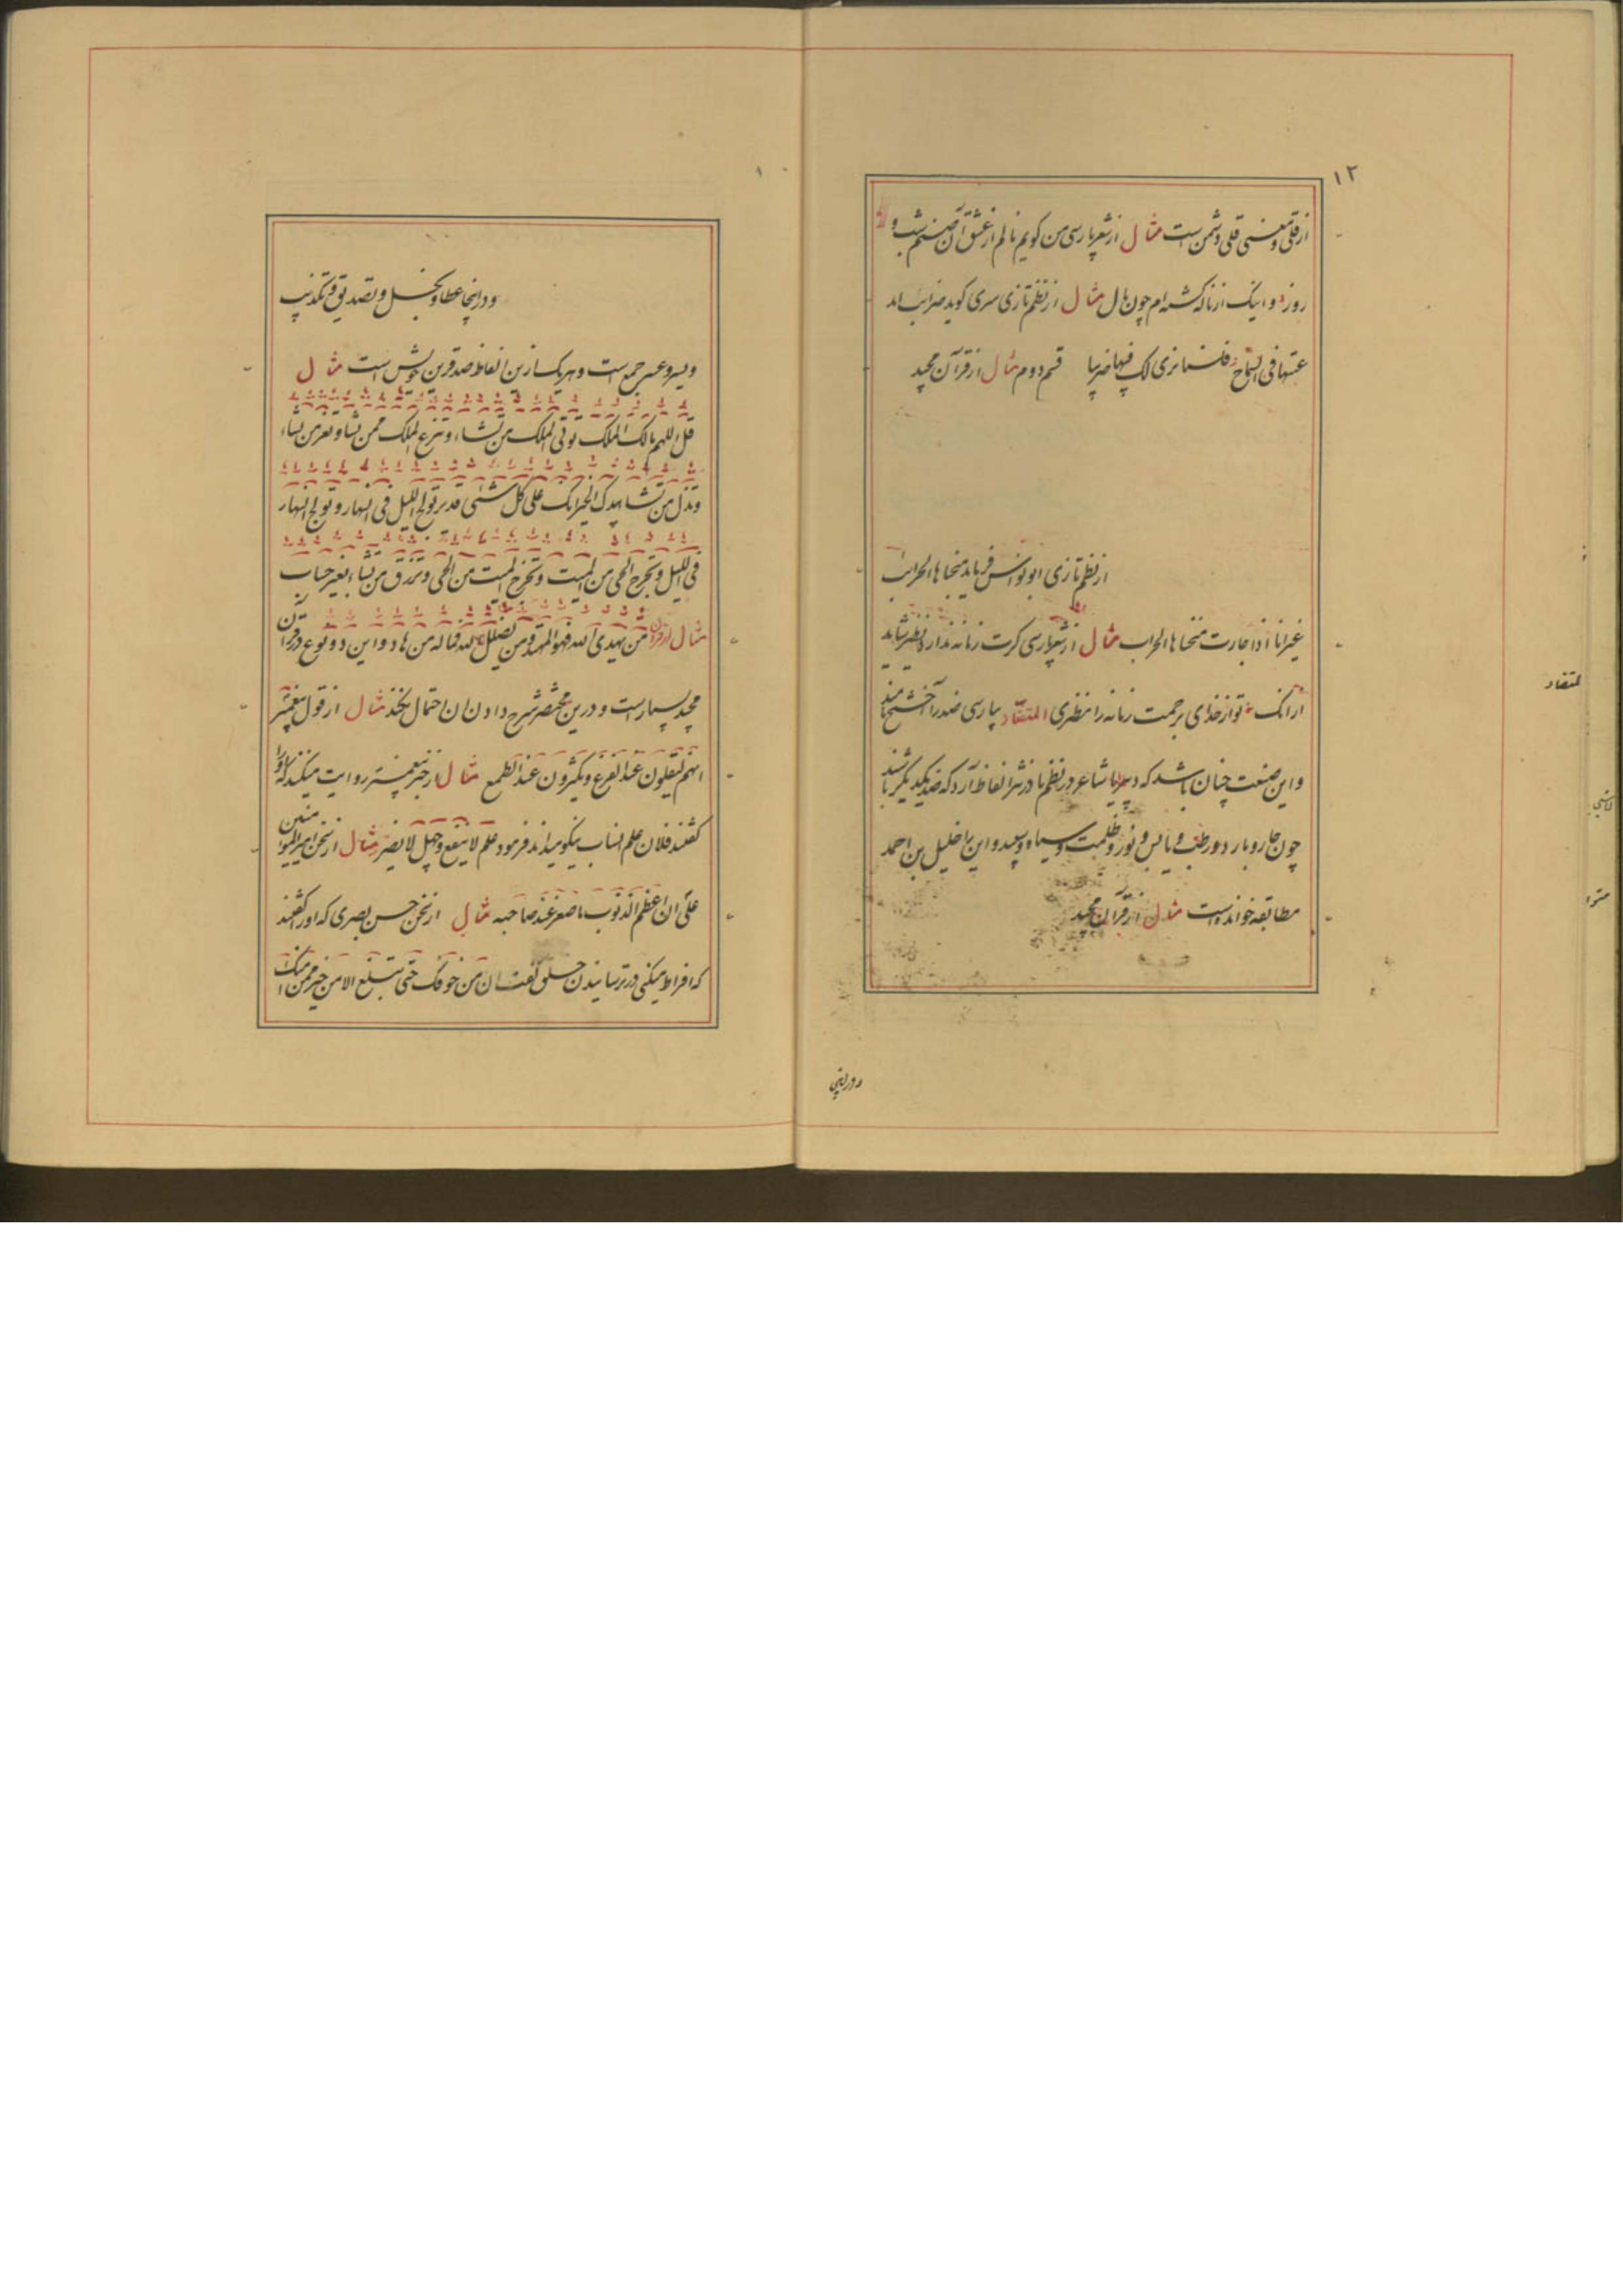 ۱۲
از قلی و معنی قلی دشمن است مثال از شعر پارسی من گویم نالم از عشق آن صنم شب و
روز و اینک از ناله گشته ام چون نال مثال از نظم تازی سری گوید ضرایب
فی السماح فلسنا نری لک فیها ضریبا قسم دوم مثال از قرآن مجید
از نظم تازی ابونواس فرماید
مثال از شعر پارسی کرت زمانه ندارد نظیر شاید
ازانک تو از خدای برحمت زمانه را نظری المتضاد پارسی ضد را آخشیج خوانند
و این صنعت چنان باشد که دبیر یا شاعر در نظم یا در نثر الفاظ آرد که ضد یکدیگر باشند
چون حار و بارد و رطب و یابس و نور و ظلمت و سیاه و سپید و این را خلیل بن احمد
مطابقه خوانده است مثال از قرآن مجید
المتضاد
و درینجا عطا و بخل و تصدیق و تکذیب
و یسر و عسر جمع است و هر یک ازین الفاظ ضد قرین خویش است مثال
قل اللهم مالک الملک توتی الملک من تشاء و تنزع الملک ممن تشا و تعز من تشاء
و تذل من تشا بیدک الخیر انک علی کل شئی قدیر تولج اللیل فی النهار و تولج النهار
فی اللیل و تخرج الحی من المیت و تخرج المیت من الحی و ترزق من تشاء بغیر حساب
مثال از قرآن من یهدی الله فهو المهتد و من یضلل الله فماله من هاد و این دو نوع در قرآن
مجید بسیارست و درین مختصر شرح دادن ان احتمال نکند مثال از قول پیغمبر
انهم لیقلون عند الفزع و یکثرون عند الطمع مثال از خبر پیغمبر روایت میکنند که او را
گفتند فلان علم انساب نیکو میداند فرمود علم لا ینفع و جهل لا یضر مثال از سخن امیر المومنین
علی ان اعظم الذنوب ما صغر عند صاحبه مثال از سخن حسن بصری که او را گفتند
که افراط میکنی در ترسانیدن خلق گفت ان من خوفک حتی تبلغ الامن خیر ممن امنک